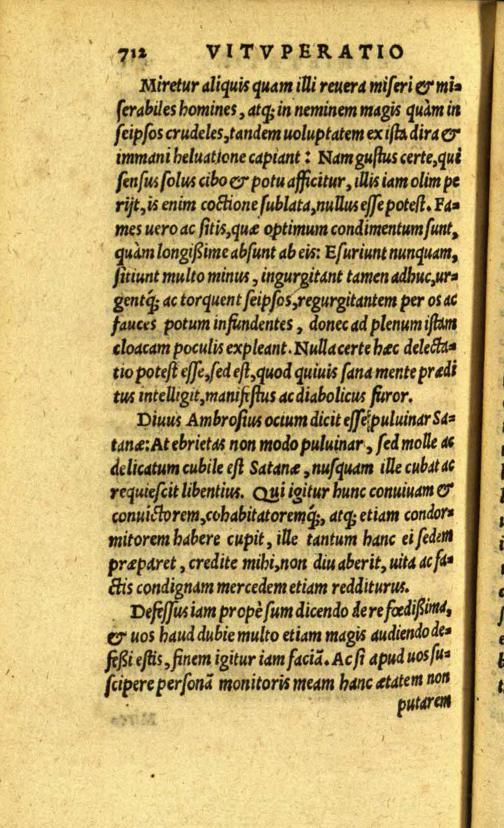 712 VITVPERATIO
Miretur aliquis quam illi reuera miseri & mi=
serabiles homines, atq; in neminem magis quàm in
seipsos crudeles, tandem uoluptatem ex ista dira &
immani heluatione capiant: Nam gustus certe, qui
sensus solus cibo & potu afficitur, illis iam olim pe
rijt, is enim coctione sublata, nullus esse potest. Fa=
mes uero ac sitis, quæ optimum condimentum sunt,
quàm longißime absunt ab eis: Esuriunt nunquam,
sitiunt multo minus, ingurgitant tamen adhuc, ur=
gentq́; ac torquent seipsos, regurgitantem per os ac
fauces potum infundentes, donec ad plenum istam
cloacam poculis expleant. Nulla certe hæc delecta=
tio potest esse, sed est, quod quiuis sana mente prædi
tus intelligit, manifestus ac diabolicus furor.
Diuus Ambrosius ocium dicit esse puluinar Sa=
tanæ: At ebrietas non modo puluinar, sed molle ac
delicatum cubile est Satanæ, nusquam ille cubat ac
requiescit libentius. Qui igitur hunc conuiuam &
conuictorem, cohabitatoremq́;, atq; etiam condor=
mitorem habere cupit, ille tantum hanc ei sedem
præparet, credite mihi, non diu aberit, uita ac fa=
ctis condignam mercedem etiam redditurus.
Defessus iam propè sum dicendo de re fœdißima,
& uos haud dubie multo etiam magis audiendo de=
feßi estis, finem igitur iam faciā. Ac si apud uos su=
scipere personā monitoris meam hanc ætatem non
putarem